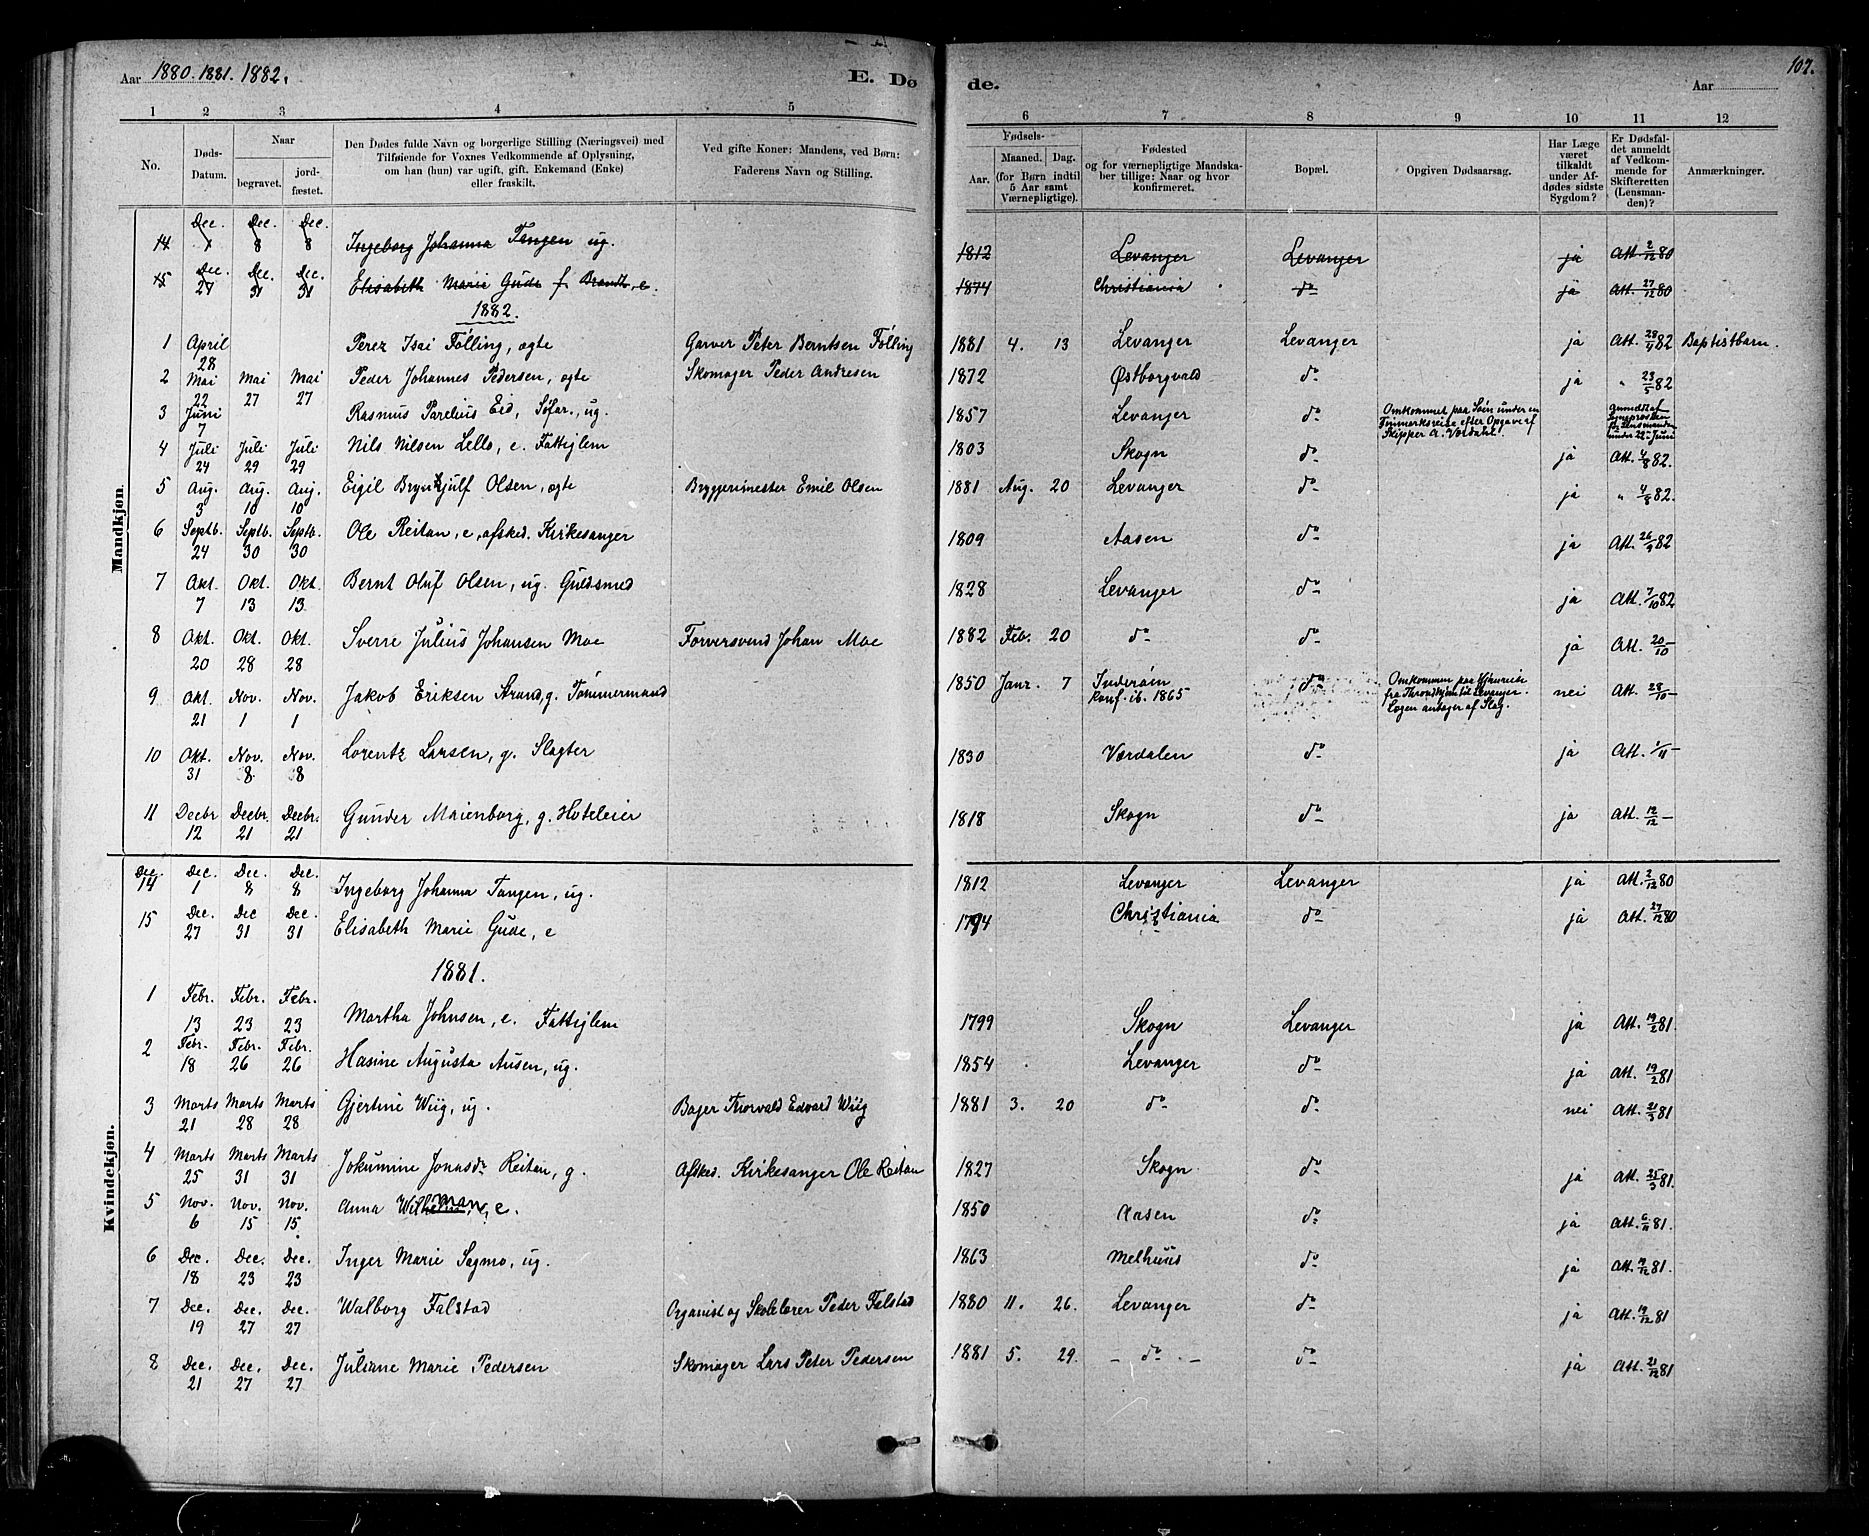 Aar 1880. 1881. 1882. E. Dø de. Aar 107.
1 2 3 4 5 6 7 8 9 10 11 12
No. Døds-Datum. Naar begravet. jord-fæstet. Den Dødes fulde Navn og borgerlige Stilling (Næringsvei) med Tilføiende for Voxnes Vedkommende af Oplysning, om han (hun) var ugift, gift, Enkemand (Enke) eller fraskilt. Ved gifte Koner: Mandens, ved Børn: Faderens Navn og Stilling. Fødsels- Aar. Maaned. Dag. (for Børn indtil 5 Aar samt Værnepligtige). Fødested og for værnepligtige Mandskaber tillige: Naar og hvor konfirmeret. Bopæl. Opgiven Dødsaarsag. Har Læge været tilkaldt under Afdødes sidste Sygdom? Er Dødsfaldet anmeldt af Vedkommende for Skifteretten (Lensmanden)? Anmærkninger.
Mandkjøn.
14 Dec. 1 Dec. 8 Dec. 8 Ingeborg Johanna Tangen ug. 1812 Levanger Levanger ja Att. 2/12 80
15 Dec. 27 Dec. 31 Dec. 31 Elisabeth Marie Gude f. Brandt, e. 1874 Christiania do ja Att. 27/12 80
1882.
1 April 28 Perez Isai Følling, ægte Garver Peter Berntsen Følling 1881 4. 13 Levanger Levanger ja Att. 28/4 82 Baptistbarn.
2 Mai 22 Mai 27 Mai 27 Peder Johannes Pedersen, ægte Skomager Peder Andresen 1872 Østborgvald do ja " 23/5 82
3 Juni 7 Rasmus Parelius Eid, Søfar., ug. 1857 Levanger do Omkommet paa Søen under en Finmarksreise efter Opgave af Skipper A. Værdahl.
4 Juli 24 Juli 29 Juli 29 Nils Nilsen Lello, e. Fattiglem 1803 Skogn do ja Att. 4/8 82.
5 Aug. 3 Aug. 10 Aug. 10 Eigil Brynhjulf Olsen, ægte Bryggerimester Emil Olsen 1881 Aug. 20 Levanger do ja " 4/8 82.
6 Septb. 24 Septb. 30 Septb. 30 Ole Reitan, e, afsked. Kirkesanger 1809 Aasen do ja Att. 26/9 82
7 Okt. 7 Okt. 13 Okt. 13. Bernt Oluf Olsen, ug. Guldsmed 1828 Levanger do ja Att. 7/10 82
8 Okt. 20 Okt. 28 Okt. 28 Sverre Julius Johansen Moe Farversvend Johan Moe 1882 Feb. 20 do do ja Att. 20/10 –
9 Okt. 21 Nov. 1 Nov. 1 Jakob Eriksen Strand, g. Tømmermand 1850 Janr. 7 Inderøen konf. ib. 1865 do Omkommen paa Hjemreise fra Throndhjem til Levanger. Lægen antager af Slag. nei Att. 28/10 –
10 Okt. 31 Nov. 8 Nov. 8 Lorentz Larsen, g. Slagter 1830 Værdalen do ja Att. 1/11 –
11 Decbr 12 Decbr. 21 Decbr. 21 Gunder Marienborg, g. Hoteleier 1818 Skogn do ja Att. 12/12 –
Kvindekjøn.
Dec. 14 Dec. 1 Dec. 8 Dec. 8 Ingeborg Johanna Tangen, ug. 1812 Levanger Levanger ja Att. 2/12 80
15 Dec. 27 Dec 31 Dec. 31 Elisabeth Marie Gude, e 1794 Christiania do ja Att. 27/12 80
1881.
1 Febr. 13 Febr. 23 Febr. 23 Martha Johnsen, e. Fattiglem 1799 Skogn Levanger ja Att. 19/2 81.
2 Febr. 18 Febr. 26 Febr. 26 Hasine Augusta Ausen, ug. 1854 Levanger do ja Att. 19/2 81
3 Marts 21 Marts 28 Marts 28 Gjertine Wiig, ug. Bager Thorvald Edvard Wiig 1881 3. 20 do do nei Att. 21/3 81
4 Marts 25 Marts 31 Marts 31 Jokumine Jonasdr Reitan, g. Afsked. Kirkesanger Ole Reitan 1827 Skogn do ja Att. 25/3 81.
5 Nov. 6 Nov. 15 Nov. 15 Anna e. 1850 Aasen do ja Att. 6/11 81.
6 Dec. 18 Dec. 23 Dec. 23 Inger Marie Sagmo, ug. 1863 Melhuus do ja Att. 19/12 81.
7 Dec. 19 Dec. 27 Dec. 27 Walborg Falstad Organist og Skolelærer Peder Falstad 1880 11. 26. Levanger do ja Att. 19/12 81
8 Dec. 21 Dec. 27 Dec. 27 Juliane Marie Pedersen Skomager Lars Peter Pedersen 1881 5. 29. – do – do ja Att. 21/12 81